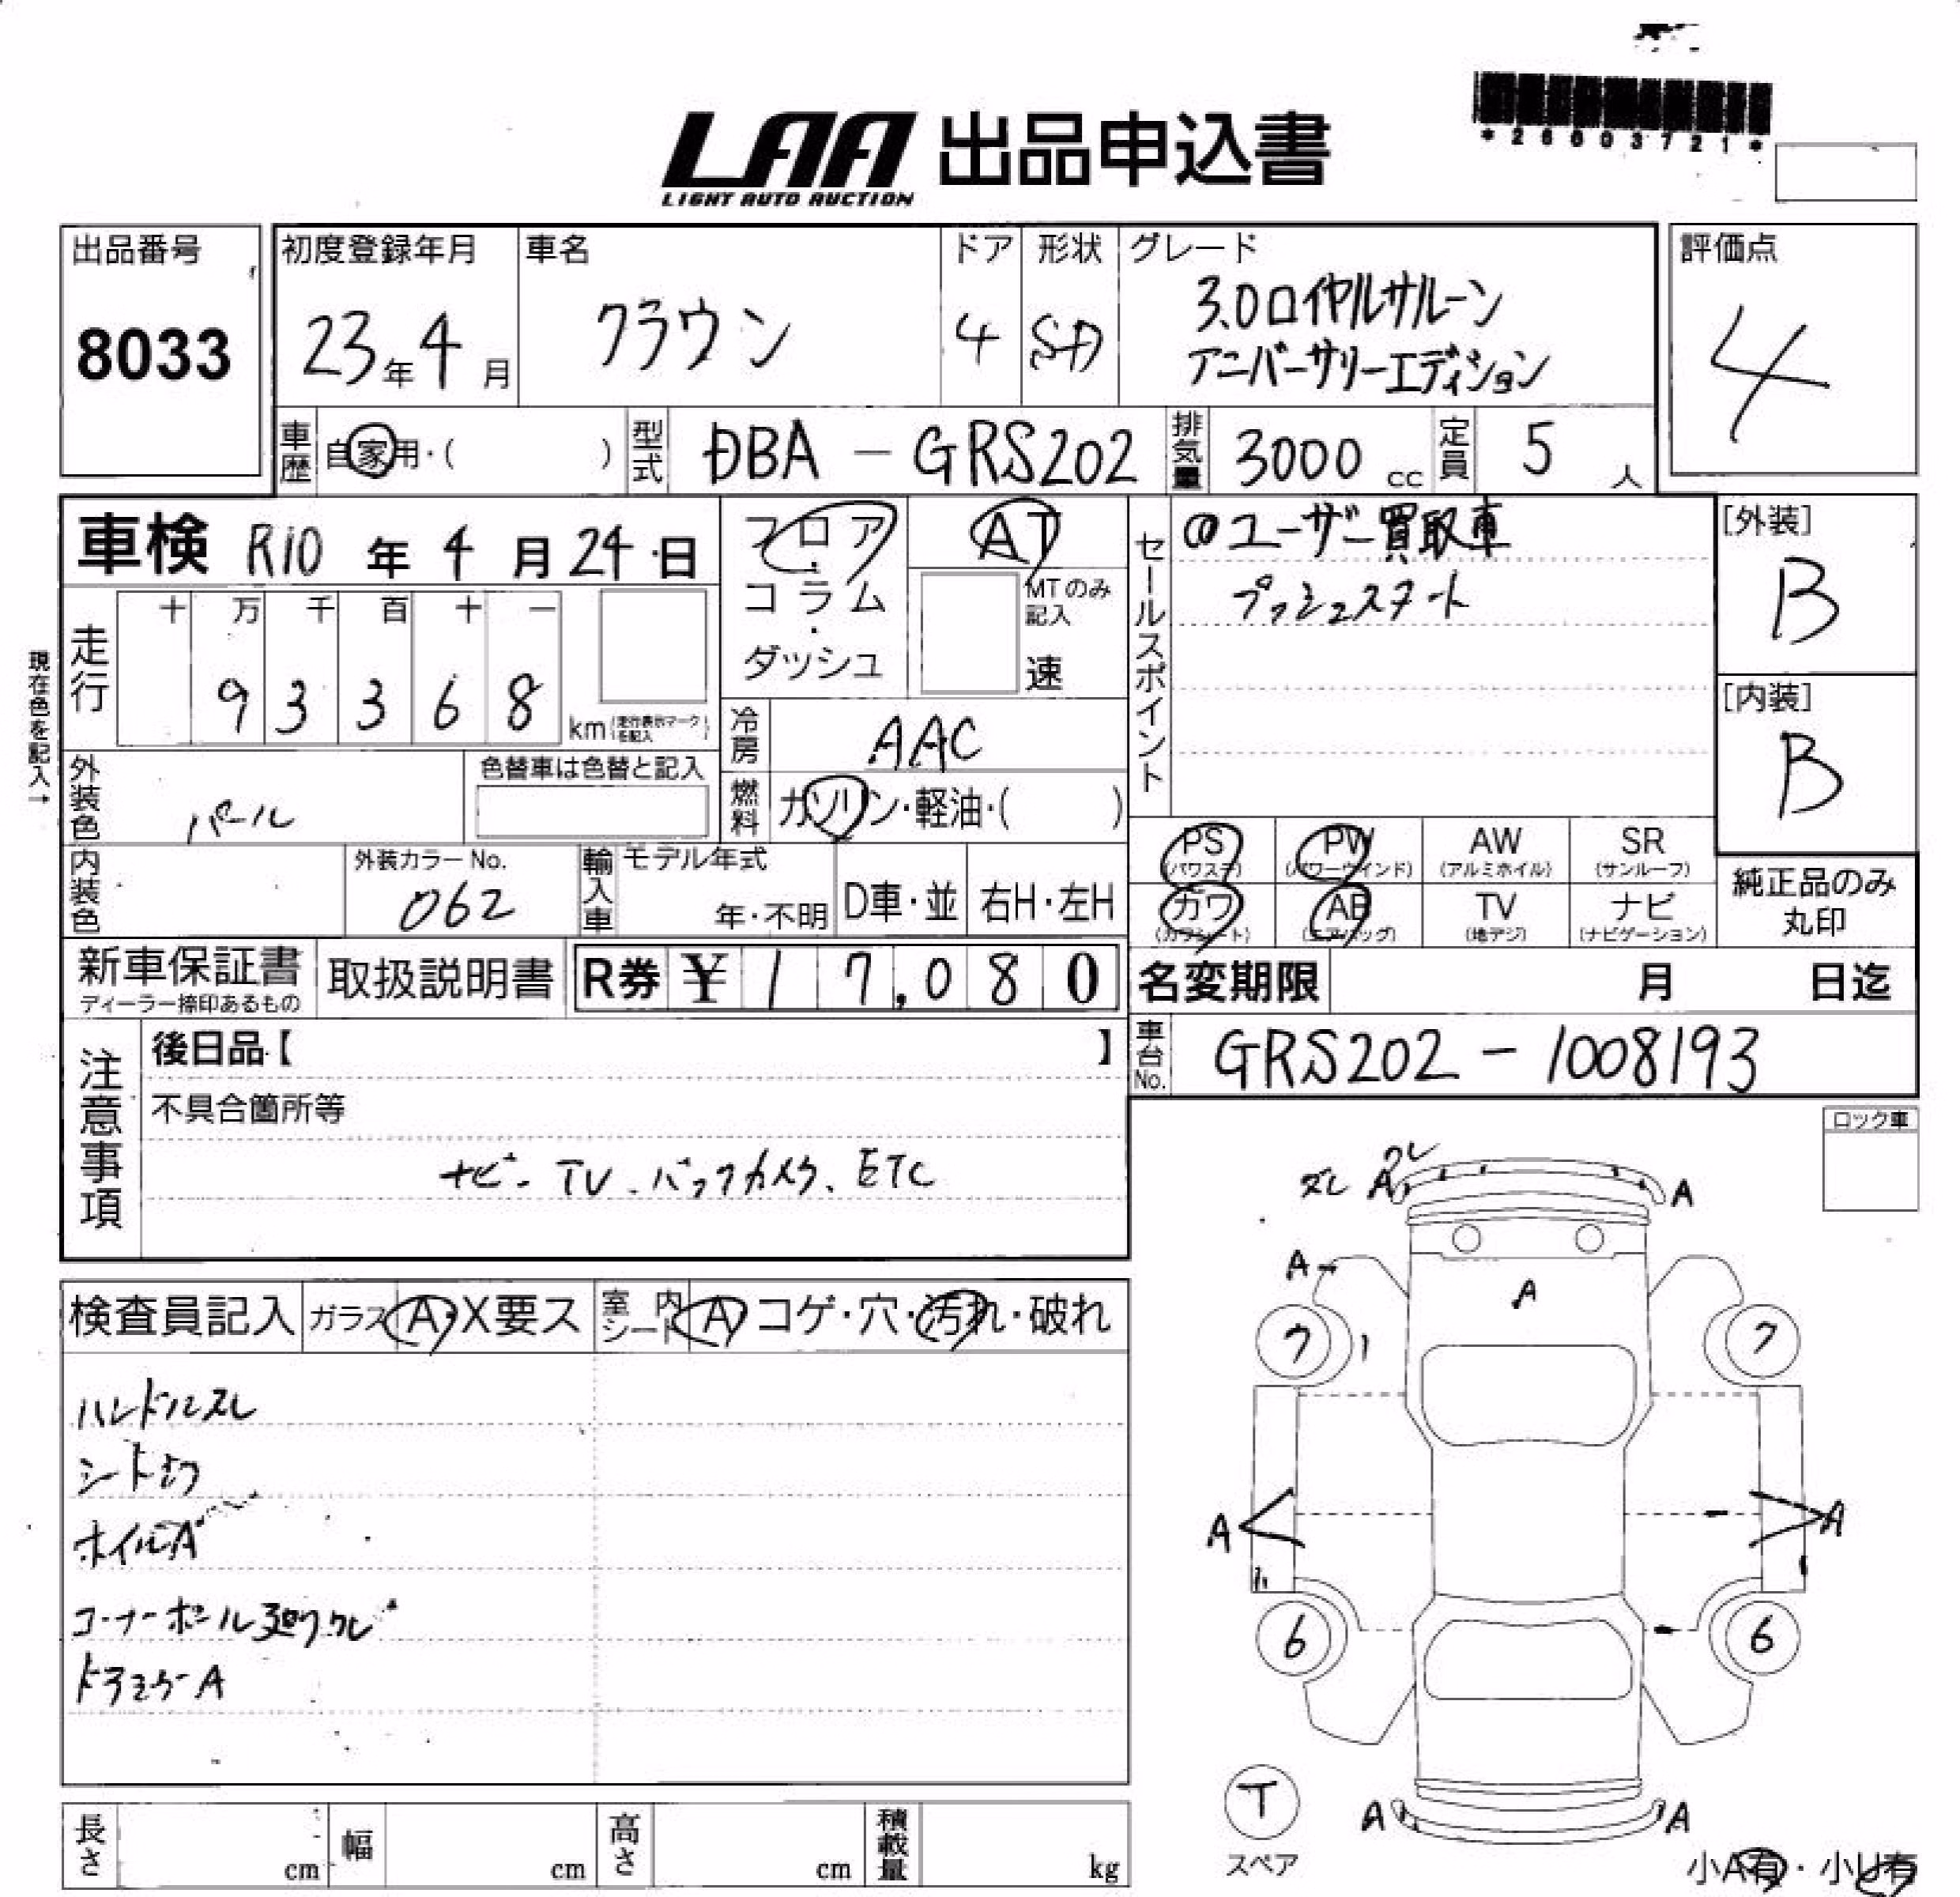 *26003721*
LAA 出品申込書
LIGHT AUTO AUCTION
出品番号
8033
初度登録年月
23年4月
車名
クラウン
ドア
4
形状
SD
グレード
3.0ロイヤルサルーン
アニバーサリーエディション
評価点
4
車歴 自家用・( )
型式 DBA - GRS202
排気量 3000 cc
定員 5 人
車検 R10 年 4 月 24 日
フロア・コラム・ダッシュ
AT
MTのみ記入
速
セールスポイント
@ユーザー買取車
プッシュスタート
[外装]
B
[内装]
B
現在色を記入→
走行 十 万 千 百 十 一
9 3 3 6 8
km (走行表示マークを記入)
冷房 AAC
外装色 パール
色替車は色替と記入
燃料 ガソリン・軽油・( )
PS (パワステ)
PW (パワーウインド)
AW (アルミホイル)
SR (サンルーフ)
カワ (カワシート)
AB (エアバッグ)
TV (地デジ)
ナビ (ナビゲーション)
純正品のみ
丸印
内装色
外装カラーNo.
062
輸入車
モデル年式
年・不明
D車・並
右H・左H
新車保証書
ディーラー捺印あるもの
取扱説明書
R券 ¥17,080
名変期限 月 日迄
車台No. GRS202-1008193
注意事項
後日品【 】
不具合箇所等
ナビ. TV. バックカメラ. ETC
ロック車
検査員記入
ガラス A・X要ス
室内シート A コゲ・穴・汚れ・破れ
ハンドルスレ
シートヨゴ
ホイルA
ドアミラーA
スレ A A
A
A
7 7
A A
6 6
T
スペア
A A
小A有・小U有
長さ cm
幅 cm
高さ cm
積載量 kg